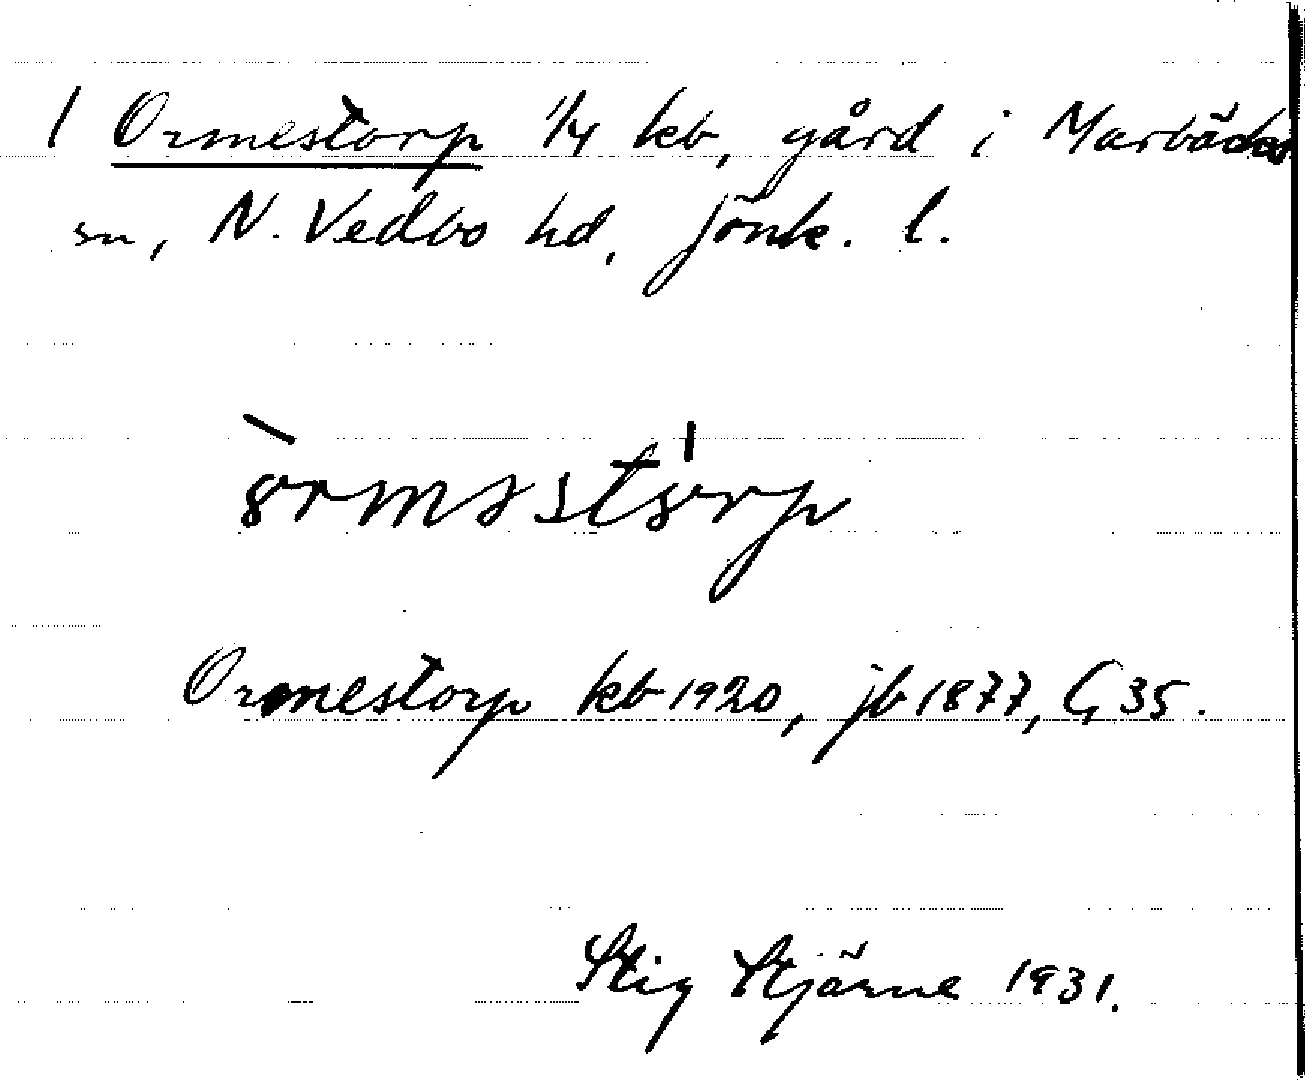 1 Ormestorp 1/4 kb, gård i Marbäcks
sn, N. Vedbo hd, Jönk. l.
Ormestorp kb 1920, jb 1877, G 35.
Stig Stjärne 1931.